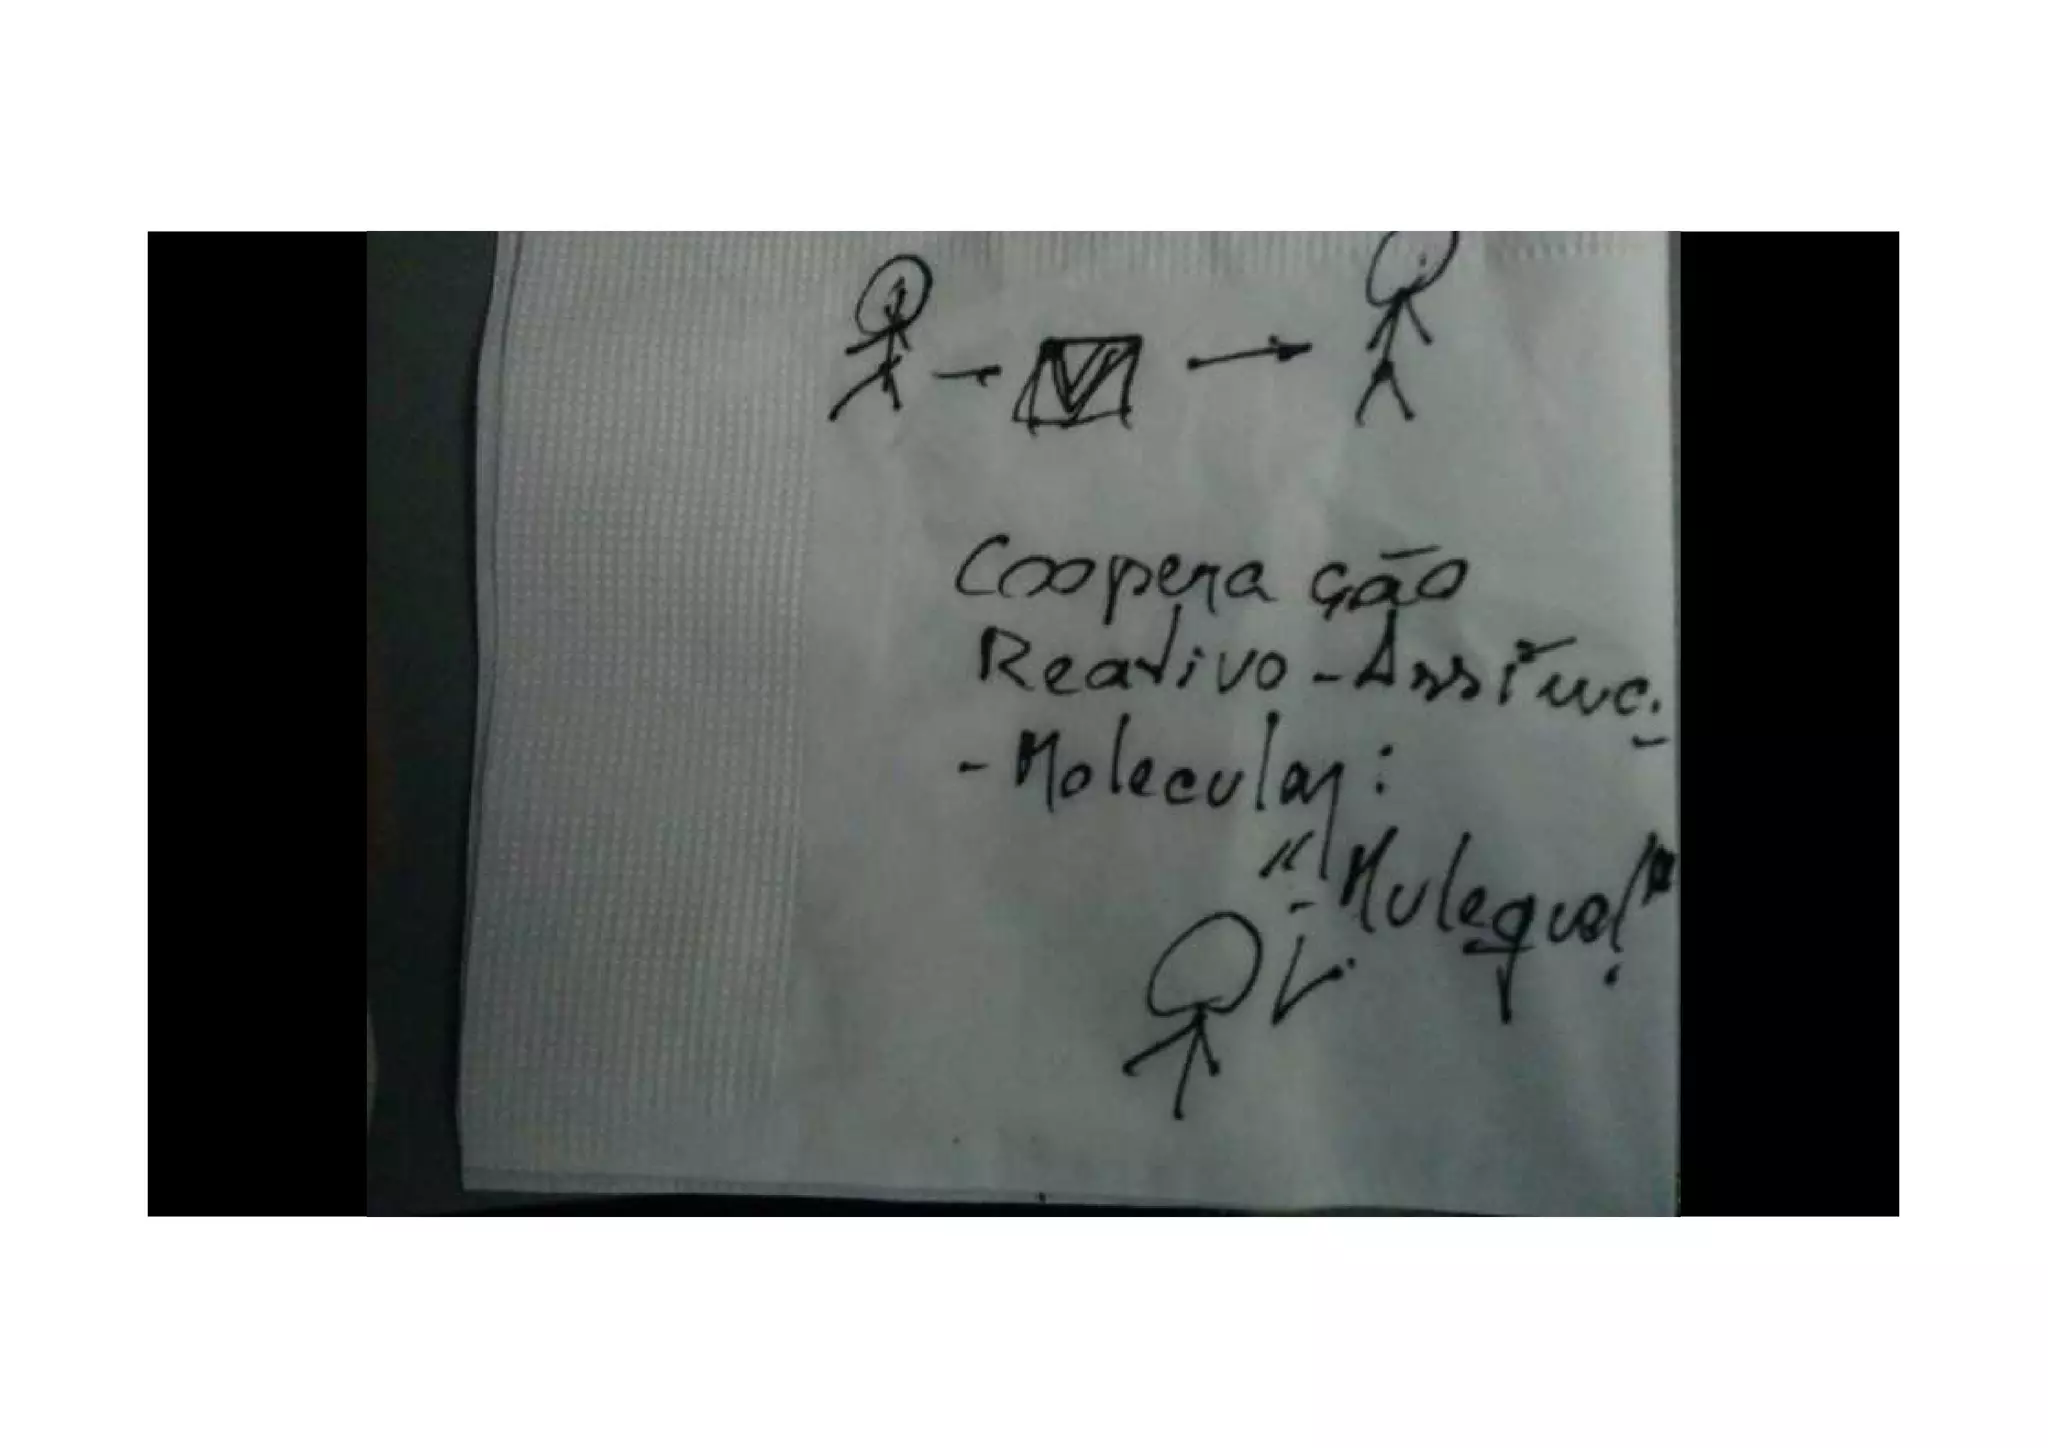 Coopera ção
Reativo - Assínc.
- Molecular:
"Mulequel"